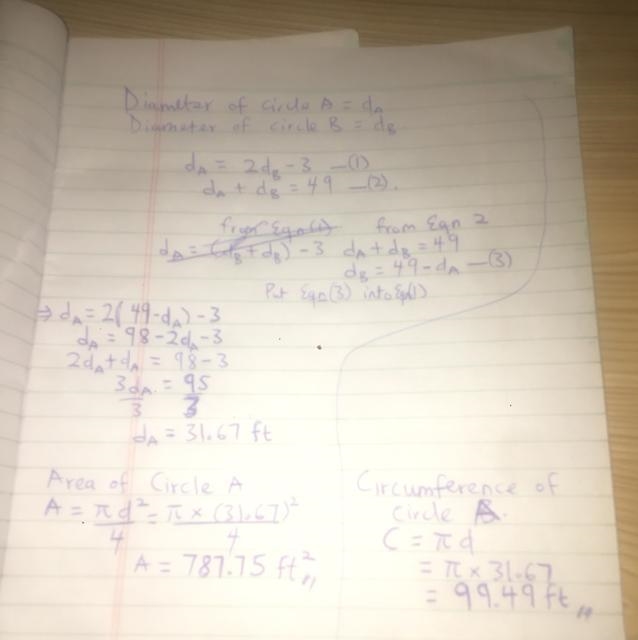 Diameter of circle A = dA
Diameter of circle B = dB
dA = 2dB - 3 —(1)
dA + dB = 49 —(2).
from Eqn(1)
dA = (dB + dB) - 3
from Eqn 2
dA + dB = 49
dB = 49 - dA —(3)
Put Eqn(3) into Eq(1)
⇒ dA = 2(49 - dA) - 3
dA = 98 - 2dA - 3
2dA + dA = 98 - 3
3dA = 95
3 3
dA = 31.67 ft
Area of Circle A
A = πd²/4 = π × (31.67)²/4
A = 787.75 ft²,,
Circumference of
Circle A.
C = πd
= π × 31.67
= 99.49 ft,,